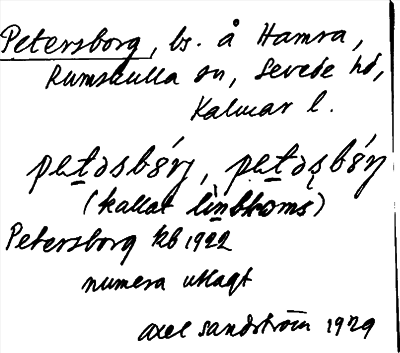 Petersborg, bs. å Hamra,
Rumskulla sn, Sevede hd,
Kalmar l.
petəsbǿrj, petəsbǿrj
(kallat linbkoms)
Petersborg kb 1922
numera utlagt
Axel Sandström 1929